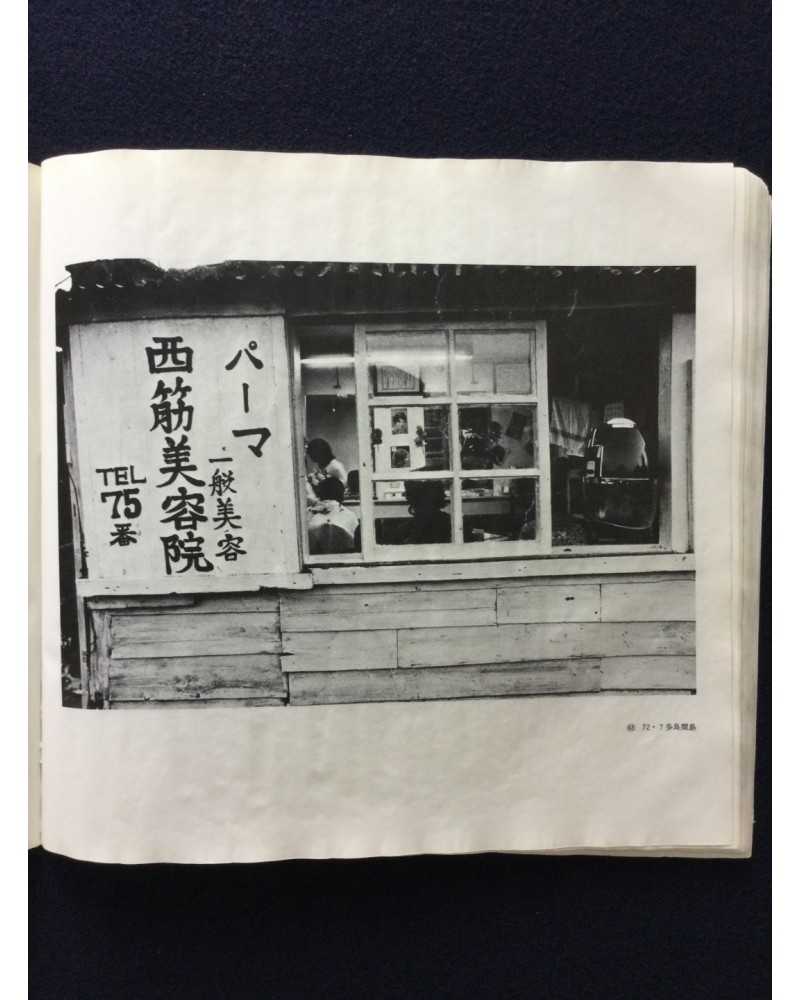 パーマ
一般美容
西筋美容院
TEL
75
番
72・7 多良間島